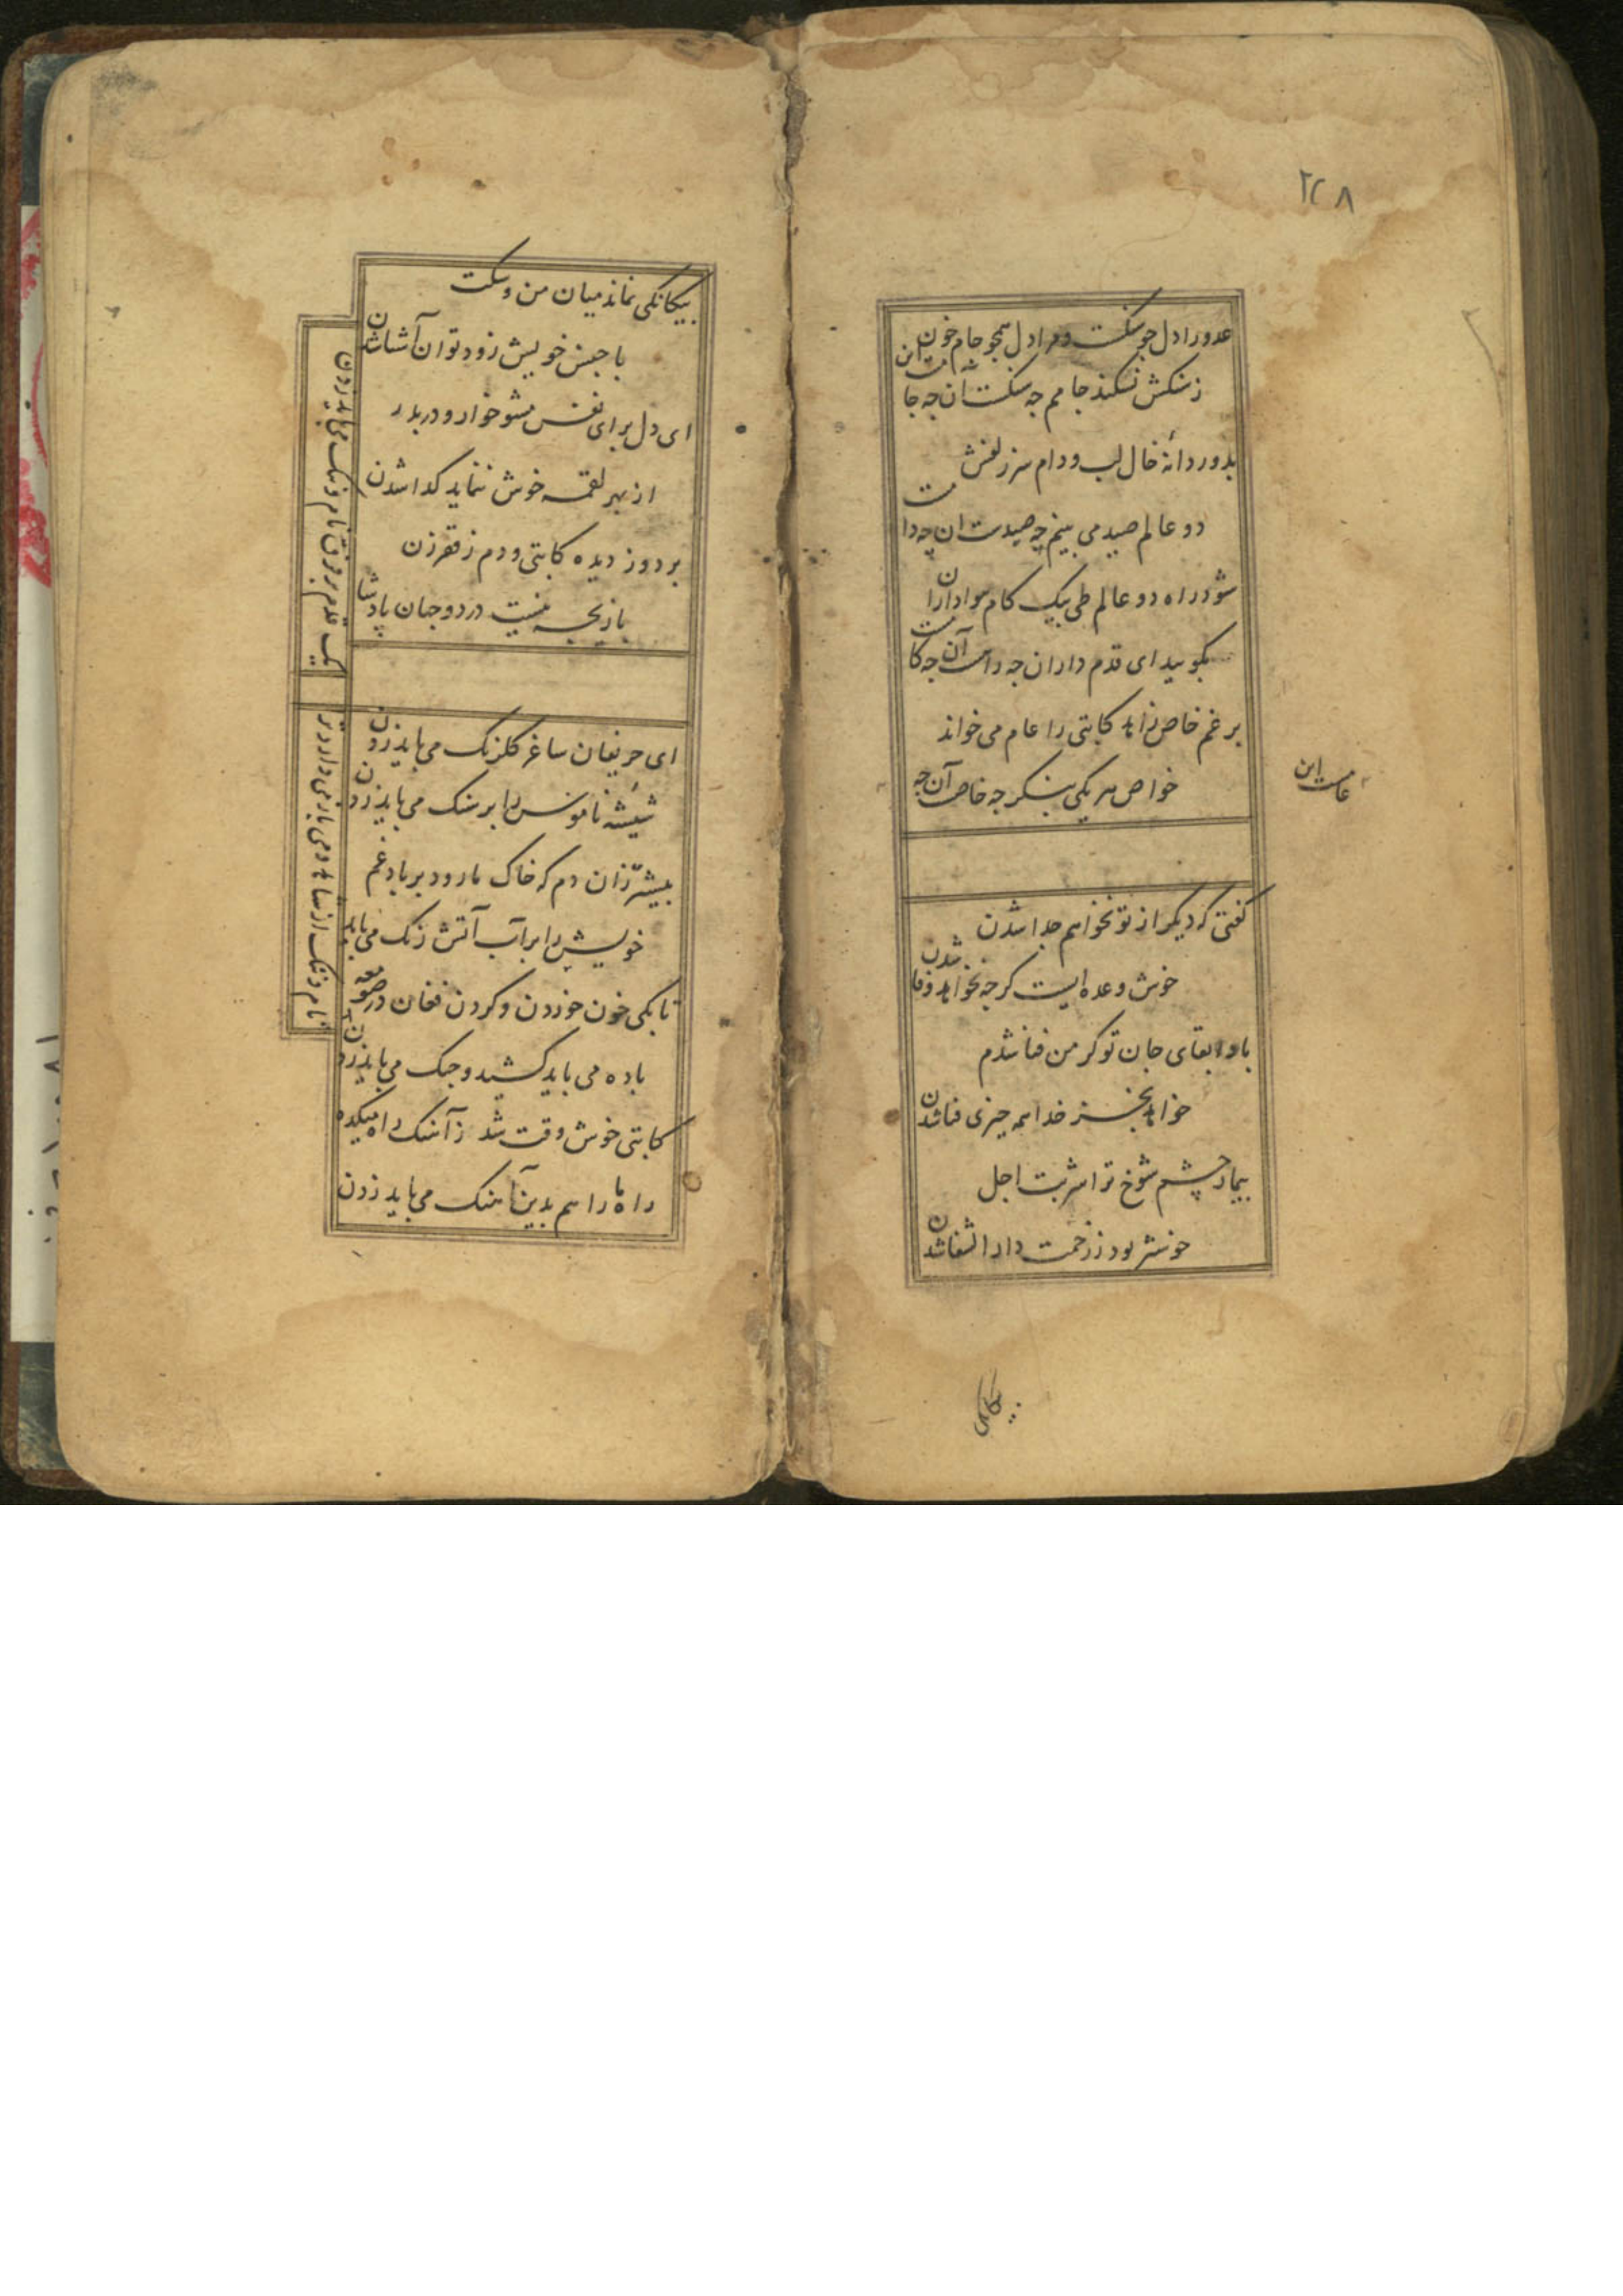 ۲۲۸
عدو را دل چو سنگست و مرا دل همچو جام خون
ز سنگش نشکند جامم چه سنگست آن چه جامست این
بدور دانهٔ خال لب و دام سر زلفش
دو عالم صید می بینم چه صیدست آن چه دامست
شود راه دو عالم طی بیک کام هواداران
بگویید ای قدم داران چه راهست آن چه کامست
برغم خاص زاهد کاتبی را عام می خواند
خواص هر یکی بنگر چه خاص آن چه
عامست این
گفتی که دیگر از تو نخواهم جدا شدن
خوش وعده ایست گرچه نخواهد وفا شدن
بادا بقای جان تو گر من فنا شدم
خواهد بجز خدا همه چیزی فنا شدن
بیمار چشم شوخ ترا شربت اجل
خوشتر بود ز زحمت دار الشفا شدن
بیگانگی نماند میان من و سگت
با جنس خویش زود توان آشنا شدن
ای دل برای نفس مشو خوار و در بدر
از بهر لقمه خوش ننماید گدا شدن
بر دوز دیده کاتبی و دم ز فقر زن
بازیچه نیست در دو جهان پادشا
ای حریفان ساغر گلرنگ می باید زدن
شیشهٔ ناموس را بر سنگ می باید زدن
پیشتر زان دم که خاک ما رود بر باد غم
خویش را بر آب آتش رنگ می باید
تا بکی خون خوردن و کردن فغان در صومعه
باده می باید کشید و چنگ می باید زدن
کاتبی خوش وقت شد ز آهنگ راه میکده
راه ما را هم بدین آهنگ می باید زدن
نام و ننگ از ما می باز می دارد ترا
یک قدم بر فرق نام و ننگ می باید زدن